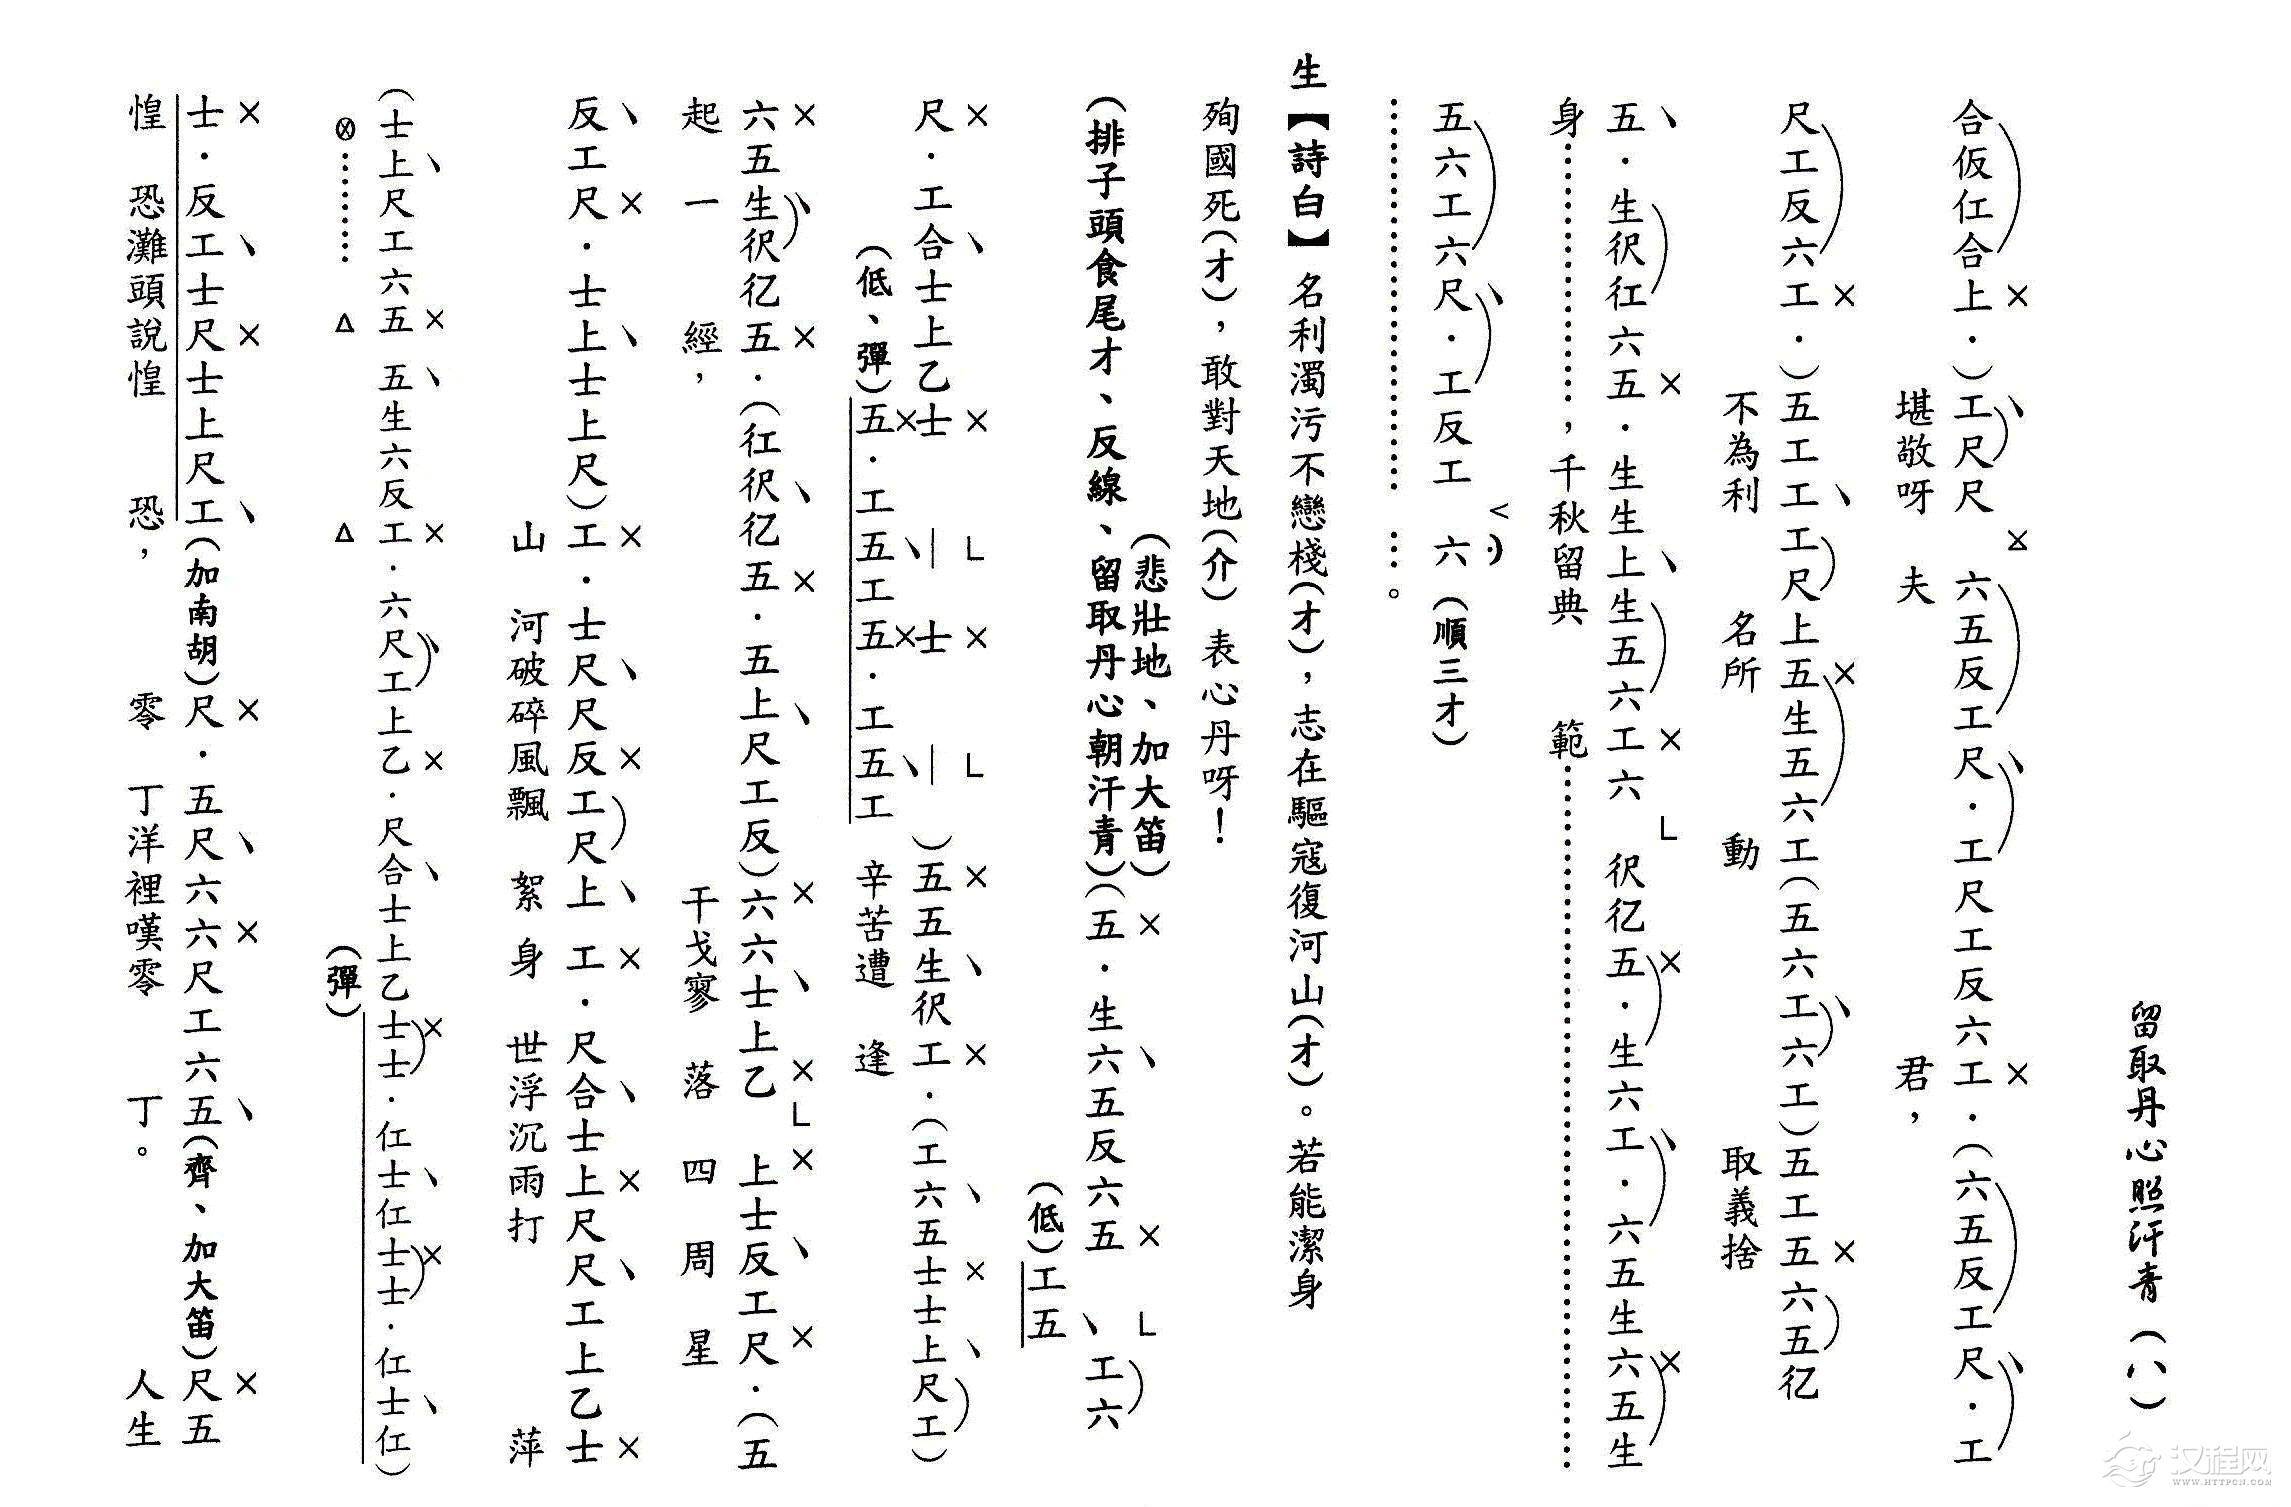 留取丹心照汗青（八）
合仮仜合上·）工尺尺 六五反工尺·工尺工反六工·（六五反工尺·工
堪敬呀 夫 君，
尺工反六工·）五工工工尺上五生五六工（五六工六工）五工五六五亿
不為利 名所 動 取義捨
五·生伬仜六五·生生上生五六工六 伬亿五·生六工·六五生六五生
身…………，千秋留典 範…………
五六工六尺·工反工 六（順三才）
………… …。
生【詩白】名利濁污不戀棧（才），志在驅寇復河山（才）。若能潔身
殉國死（才），敢對天地（介）表心丹呀！
（悲壯地、加大笛）
（排子頭食尾才、反線、留取丹心朝汗青）（五·生六五反六五 工六
（低）工五
尺·工合士上乙士 士 ）五五生伬工·（工六五士士上尺工）
（低、彈）五·工五工五·工五工 辛苦遭 逢
六五生伬亿五·（仜伬亿五·五上尺工反）六六士上乙 上士反工尺·（五
起 一 經， 干戈寥 落 四 周 星
反工尺·士上士上尺）工·士尺尺反工尺上工·尺合士上尺尺工上乙士
山 河破碎風飄 絮 身 世浮沉雨打 萍
（士上尺工六五 五生六反工·六尺工上乙·尺合士上乙士士·仜士仜士士·仜士仜）
（彈）
士·反工士尺士上尺工（加南胡）尺·五尺六六尺工六五（齊、加大笛）尺五
惶 恐灘頭說惶 恐， 零 丁洋裡嘆零 丁。 人生
汉程网
WWW.HTTPCN.COM